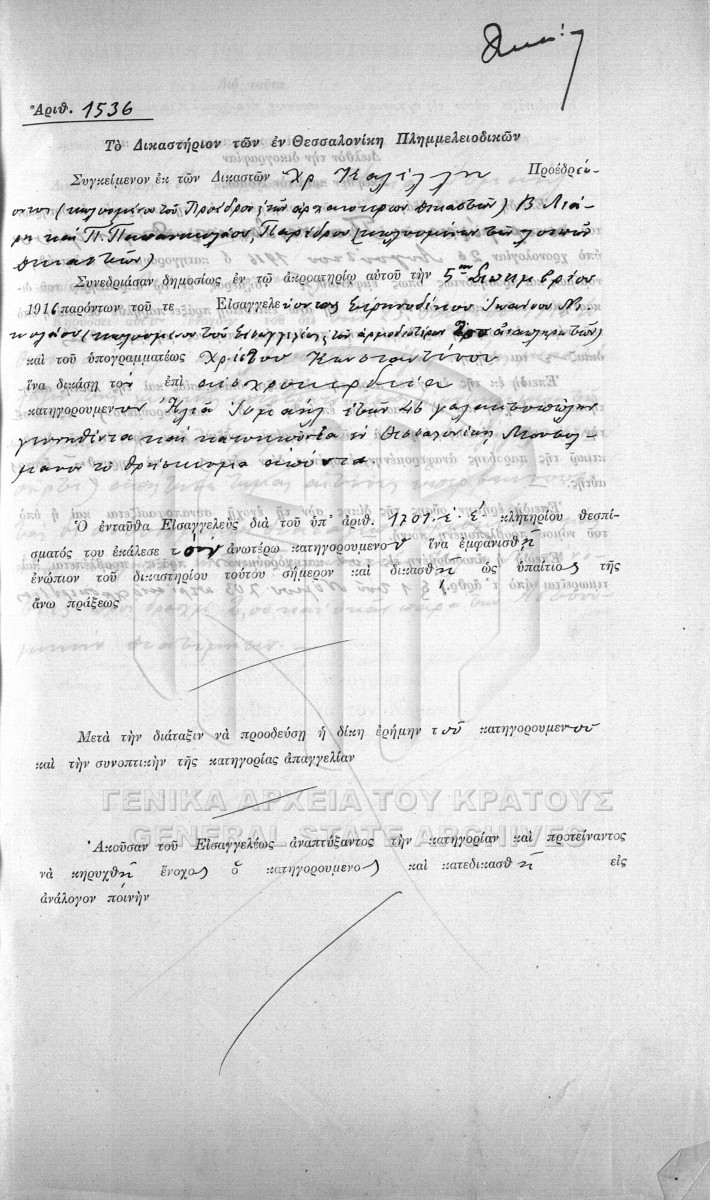 Ἀριθ. 1536
Τὸ Δικαστήριον τῶν ἐν Θεσσαλονίκῃ Πλημμελειοδικῶν
Συγκείμενον ἐκ τῶν Δικαστῶν Χρ Προέδρεύ-
οντος (κωλυομένου τοῦ Προέδρου, τῶν ἀρχαιοτέρων δικαστῶν) Β.
καὶ Π. Παπανικολάου, Παρέδρου (κωλυομένων τῶν λοιπῶν
δικαστῶν)
Συνεδριάσαν δημοσίως ἐν τῷ ἀκροατηρίῳ αὐτοῦ τὴν 5ην
1916 παρόντων τοῦ τε Εἰσαγγελεύοντος Εἰρηνοδίκου Ἰωάννου Νι-
κολάου (κωλυομένου τοῦ Εἰσαγγελέως, τῶν ἁρμοδιωτέρων ἀναπληρωτῶν)
καὶ τοῦ ὑπογραμματέως Χρίστου Κωνσταντίνου
ἵνα δικάσῃ τὸν ἐπὶ αἰσχροκερδείᾳ
κατηγορούμενον Ἠλιᾶ Ἰσμαὴλ ἐτῶν 46 γαλακτοπώλην
γεννηθέντα καὶ κατοικοῦντα ἐν Θεσσαλονίκῃ, Μουσουλ-
μάνον τὸ θρήσκευμα
Ὁ ἐνταῦθα Εἰσαγγελεὺς διὰ τοῦ ὑπ' ἀριθ. 1701 κλητηρίου θεσπί-
σματός του ἐκάλεσε τὸν ἀνωτέρω κατηγορουμενον ἵνα ἐμφανισθῇ
ἐνώπιον τοῦ δικαστηρίου τούτου σήμερον καὶ δικασθῇ ὡς ὑπαίτιος τῆς
ἄνω πράξεως
Μετὰ τὴν διάταξιν νὰ προοδεύσῃ ἡ δίκη ἐρήμην τοῦ κατηγορουμενου
καὶ τὴν συνοπτικὴν τῆς κατηγορίας ἀπαγγελίαν
ΓΕΝΙΚΑ ΑΡΧΕΙΑ ΤΟΥ ΚΡΑΤΟΥΣ
GENERAL STATE ARCHIVES
Ἀκοῦσαν τοῦ Εἰσαγγελέως ἀναπτύξαντος τὴν κατηγορίαν καὶ προτείναντος
νὰ κηρυχθῇ ἔνοχος ὁ κατηγορουμενος καὶ κατεδικασθῇ εἰς
ἀνάλογον ποίνὴν